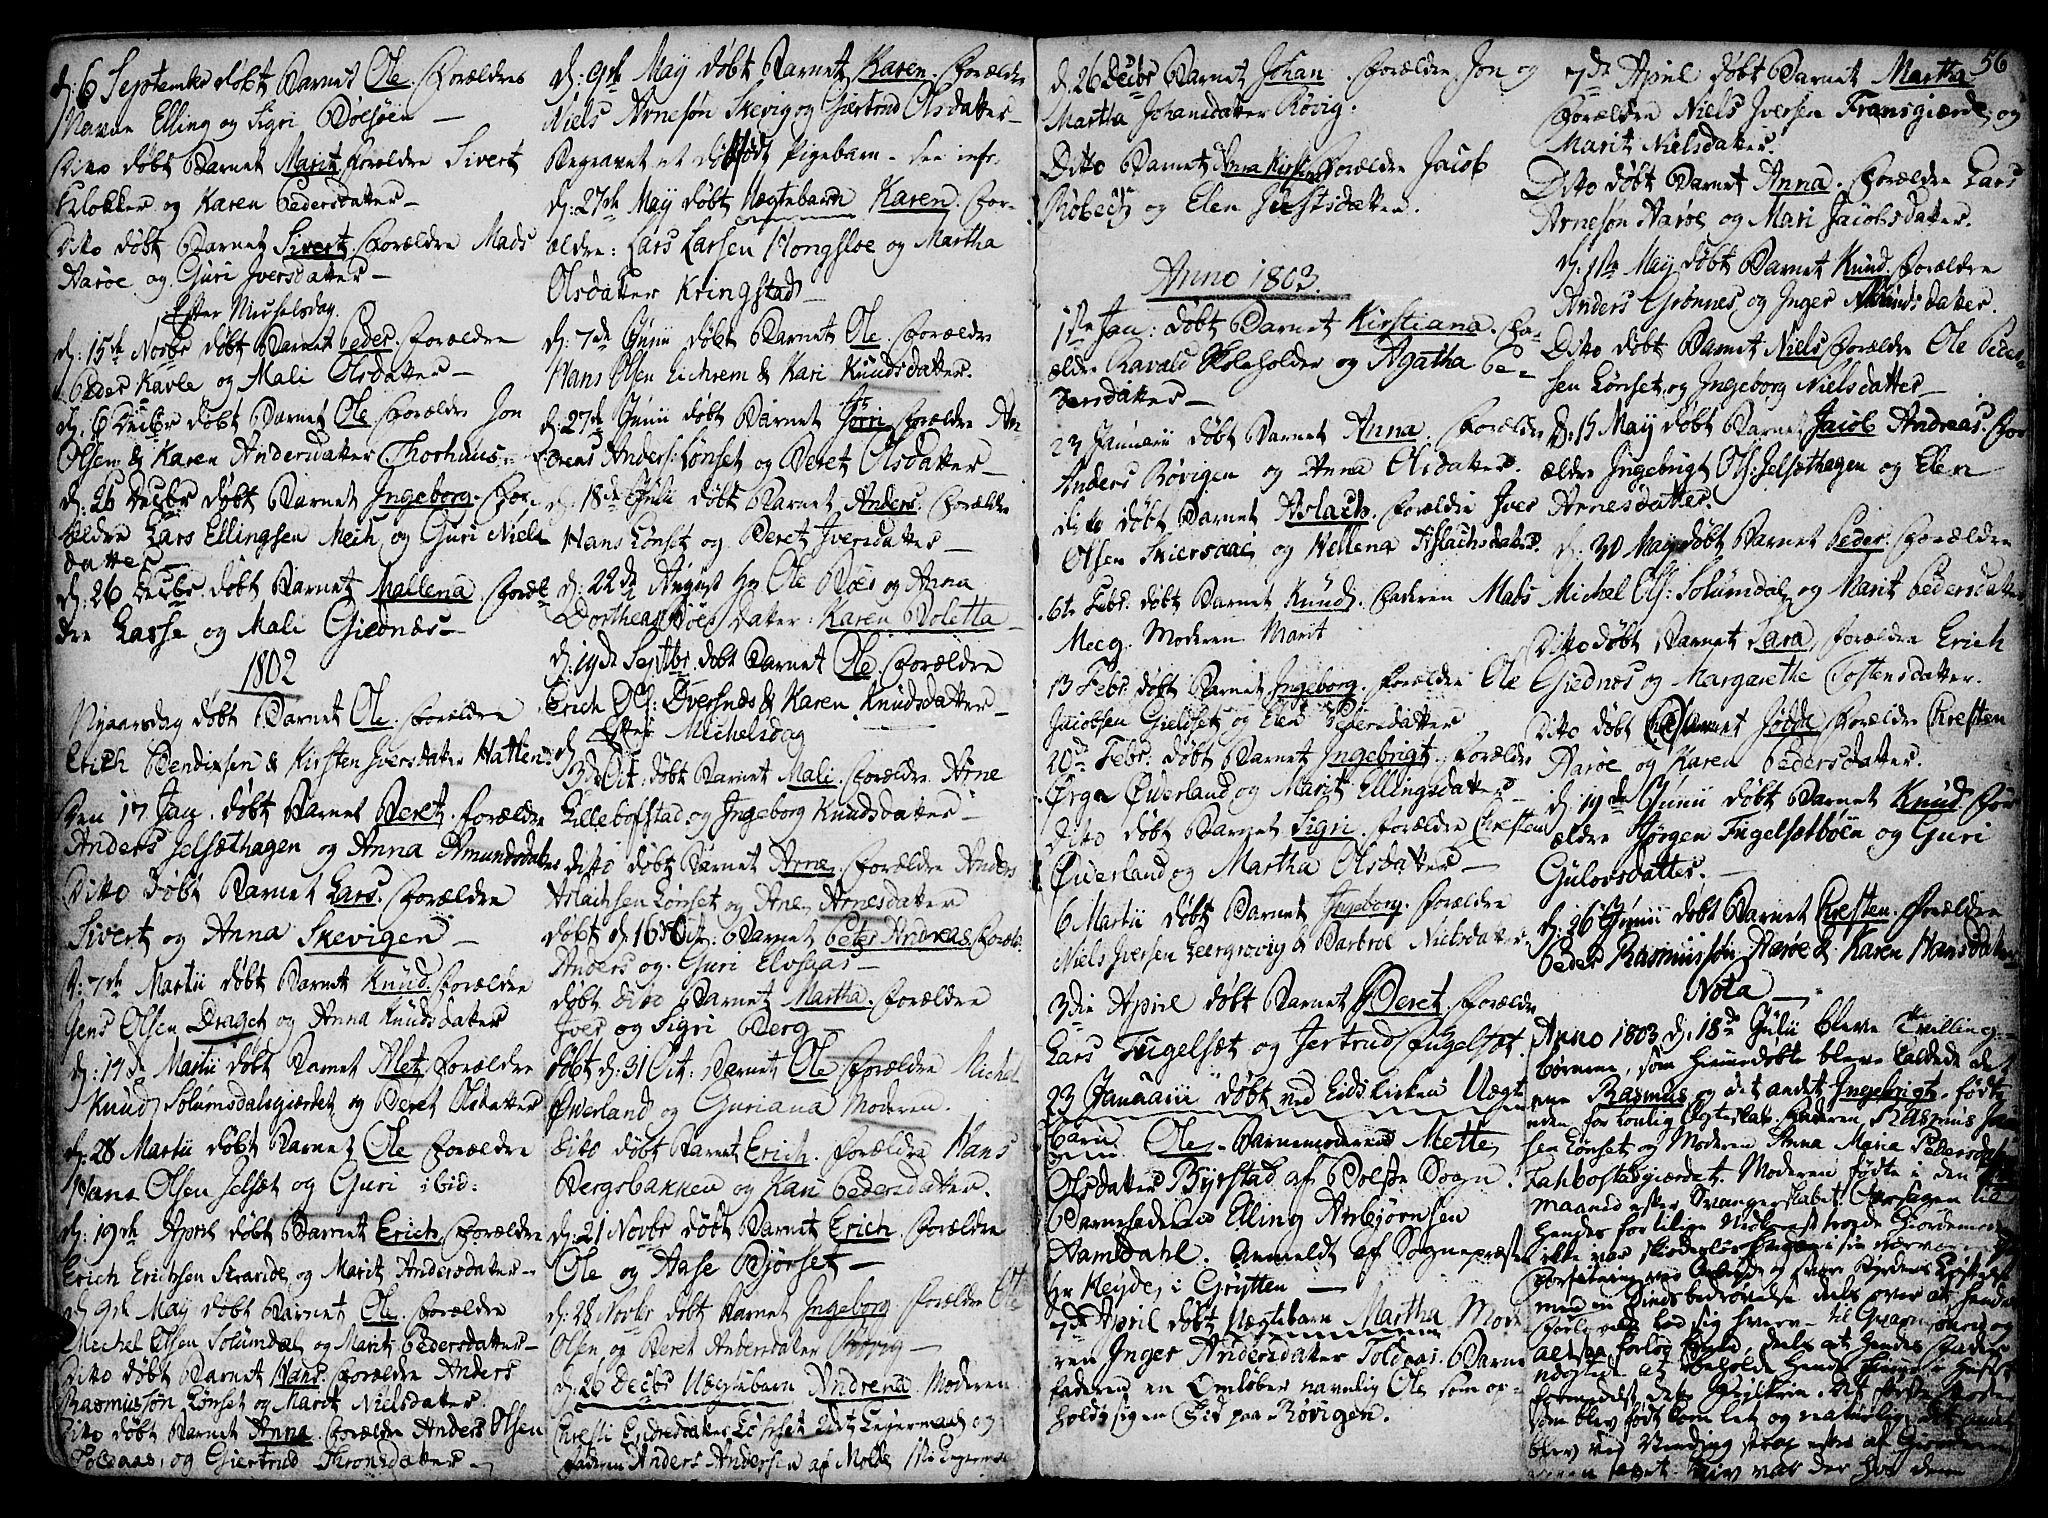 d: 6 September døbt Barnet Ole. Forældre
Elling og Sigri Bolsøen
Dito døbt Barnet Marit. Forældre Sivert
Klokker og Karen Pedersdatter
Dito døbt Barnet Sivert. Forældre Mads
Aarøe og Guri Iversdatter
Efter Michelsdag.
d: 15de Novbr døbt Barnet Peder. Forældre
Peder Kavle og Mali Olsdatter
d: 6 Decbr døbt Barnet Ole. Forældre Jon
Olsen & Karen Andersdatter Thorhuus
d: 26 Decbr døbt Barnet Ingeborg. For-
ældre Lars Ellingsen Mech og Guri Niels
datter
d: 26 Decbr døbt Barnet Mallena. Foræl-
dre Lasse og Mali Giednæs
1802
Nyaarsdag døbt Barnet Ole. Forældre
Erich Bendixsen & Kirsten Iversdatter Hatlen
Den 17 Jan. døbt Barnet Beret. Forældre
Anders Jelsæthagen og Anna Amundsdatter
Ditto døbt Barnet Lars. Forældre
Sivert og Anna Skevigen
d: 7de Martii døbt Barnet Knud. Forældre
Jens Olsen Draget og Anna Knudsdatter
d: 14de Martii døbt Barnet Alet. Forældre
Knud Solumsdalsgiærdet og Beret Olsdatter
d: 28 Martii døbt Barnet Ole. Forældre
Hans Olsen Jelset og Guri ibid:
d: 19de April døbt Barnet Erich. Forældre
Erich Erichsen Strande og Marit Andersdatter
d: 9de May døbt Barnet Ole. Forældre
Michel Olsen Solumdal og Marit Pedersdatter
Dito døbt Barnet Hans. Forældre Anders
Rasmussøn Lønset og Marit Nielsdatter
Dito døbt Barnet Anna. Forældre Anders Olsen
Toldaas, og Giertrud Thronsdatter
d: 9de May døbt Barnet Karen. Forældre
Niels Arnesøn Skevig og Giertrud Olsdatter
Begravet et dødfødt Pigebarn
d: 27de May døbt Uægtebarn Karen. For-
ældre: Lars Larsen Kongsloe og Martha
Olsdatter Kringstad
d: 7de Junii døbt Barnet Ole. Forældre
Hans Olsen Eichrem & Kari Knudsdatter.
d: 27de Junii døbt Barnet Jørn. Forældre An-
dreas Anders: Lønset og Beret Olsdatter
d: 18de Julii døbt Barnet Anders. Forældre
Hans Lønset og Beret Iversdatter
d: 22de August hr Ole Bøes og Anna
Dorthea Bøes Datter: Karen Boletta
d: 19de Septbr døbt Barnet Ole. Forældre
Erich Ols: Dversnæs & Karen Knudsdatter
Efter Michelsdag
d 3de Oct. døbt Barnet Mali. Forældre Arne
Lillebostad og Ingeborg Knudsdatter
Dito døbt Barnet Arne. Forældre Anders
Aslachsen Lønset og Ane Arnesdatter
døbt d: 16 Oct. Barnet Peter Andreas. Foræl:
Anders og Guri Elvsaas
døbt dito Barnet Martha. Forældre
Iver og Sigri Berg
døbt d: 31 Oct: Barnet Ole. Forældre Michel
Øverland og Guriana Moderen.
Dito døbt Barnet Erich. Forældre Hans
Bergsbakken og Kari Pedersdatter.
d: 21 Novbr døbt Barnet Erich. Forældre
Ole og Aase Bjørset
d: 28 Novbr døbt Barnet Ingeborg. Forældre Ole
Olsen og Beret Andersdatter Røvig
d: 26 Decbr Uægtebarn Andrena. Moderen
Christi Endresdatter Lønset 2det Leiermaal og
faderen Anders Andersen af Molde
d. 26 Decbr Barnet Johan. Forældre Jon og
Martha Johansdatter Røvig.
Dito Barnet Anna Kirstin Forældre Jacob
Røbech og Elen Justsdatter.
Anno 1803.
1ste Jan: døbt Barnet Kirstiana. For-
ældre Ravald Holeholder og Agatha Pe-
dersdatter
23 Januarii døbt Barnet Anna. Forældre
Anders Røvigen og Anna Olsdatter.
Dito døbt Barnet Aslach. Forældre Iver
Olsen Skiersaae og Hellena Aslachsdatter
6te Febr. døbt Barnet Knud. Faderen Mats
Meeg. Moderen Marit
13 Febr. døbt Barnet Ingeborg. Forældre Ole
Jacobsen Gieldset og Elen Pedersdatter
20de Febr. døbt Barnet Ingebrigt. Forældre
Ørgn Øverland og Marit Ellingsdatter
Dito døbt Barnet Sigri. Forældre Christen
Øverland og Martha Olsdatter
6 Martii døbt Barnet Ingeborg. Forældre
Niels Iversen Leergrovig & Barbroe Nielsdatter
3die April døbt Barnet Beret. Forældre
Lars Fugelsæt og Jertrud Fugelset.
23 Januarii døbt ved Eidskirken Uægt
barn Ole. Barnemoderen Mette
Olsdatter Byrstad af Bolsø Sogn.
Barnefaderen Elling Asbjørnsen
Hamsdahl. Anmeldt af Sognepræsten
hr Heyde i Grytten
7de April døbt Uægtebarn Martha Mode-
ren Inger Andersdatter Toldaas. Barne
faderen en Omløber navnlig Ole som op-
holdt sig en Tid paa Røvigen.
56
7de April døbt Barnet Martha
Forældre Niels Iversen Fransgiærde og
Marit Nielsdatter.
Dito døbt Barnet Anna. Forældre Lars
Arnesøn Aarøe og Mari Jacobsdatter.
d: 1ste May døbt Barnet Knud. Forældre
Anders Grønnes og Inger Amundsdatter.
Dito døbt Barnet Niels Forældre Ole Peder-
sen Lønset og Ingeborg Nielsdatter
d. 15 May døbt Barnet Jacob Andreas. For
ældre Ingebrigt Ols: Jelsæthagen og Elen
Arnesdatter.
d: 30 May døbt Barnet Peder. Forældre
Michel Ols: Solumdal og Marit Pedersdatter
Dito døbt Barnet Sara. Forældre Erich
Giednæs og Margarethe Tostensdatter.
Dito døbt Barnet Jødde Forældre Christen
Aarøe og Karen Pedersdatter.
d: 19de Junii døbt Barnet Knud. For
ældre Jørgen Fugelsætbøen og Guri
Gulovsdatter.
d: 26 Junii døbt Barnet Christen. Forældre
Peder Rasmussøn Aarøe & Karen Hansdatter
Nota
Anno 1803 d: 18de Julii bleve Tvilling-
børnene, som hiemmedøbte bleve kaldede det
ene Rasmus og det andet Ingebrigt, født
uden for lovlig Ægteskab. Faderen Rasmus
sen Lønset og Moderen Anna Maria Pedersdatter
Fahbostadgiærdet. Moderen fødte i den
maaned efter Svangerskabet. Aarsagen til
hendes for tilige Nedkomst troede Giordemoderen
ikke var skiødesløshed
ved Arbeide og
med en Sindsbedrøvelse deels over at hendes
Forlovede lod sig hverve til Guarnisonen og
altsaa forlod hende, deels at hendes Fader
nægtede at beholde hende længer i Huset
formedelst dette Tilfælde. Det første
som blev født kom let og naturlig, det andet
blev ved Vending strax efter af Giordemo-
deren taget. Liv var der hos dem